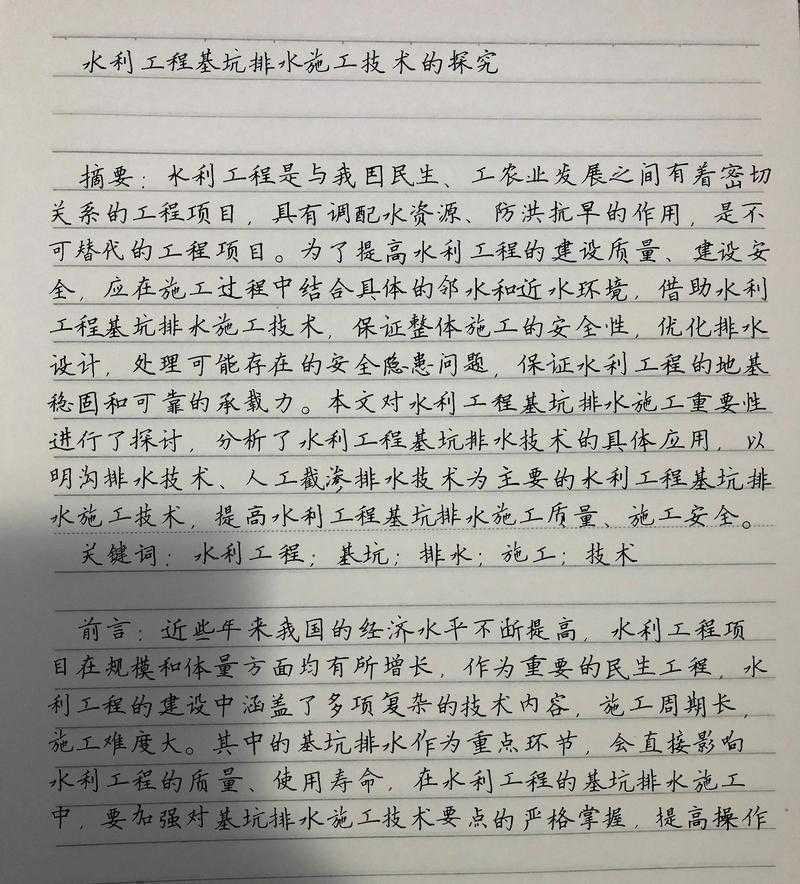 水利工程基坑排水施工技术的探究
摘要：水利工程是与我国民生、工农业发展之间有着密切
关系的工程项目，具有调配水资源、防洪抗旱的作用，是不
可替代的工程项目。为了提高水利工程的建设质量、建设安
全，应在施工过程中结合具体的邻水和近水环境，借助水利
工程基坑排水施工技术，保证整体施工的安全性，优化排水
设计，处理可能存在的安全隐患问题，保证水利工程的地基
稳固和可靠的承载力。本文对水利工程基坑排水施工重要性
进行了探讨，分析了水利工程基坑排水技术的具体应用，以
明沟排水技术、人工截渗排水技术为主要的水利工程基坑排
水施工技术，提高水利工程基坑排水施工质量、施工安全。
关键词：水利工程；基坑；排水；施工；技术
前言：近些年来我国的经济水平不断提高，水利工程项
目在规模和体量方面均有所增长，作为重要的民生工程，水
利工程的建设中涵盖了多项复杂的技术内容，施工周期长，
施工难度大。其中的基坑排水作为重点环节，会直接影响
水利工程的质量、使用寿命，在水利工程的基坑排水施工
中，要加强对基坑排水施工技术要点的严格掌握，提高操作